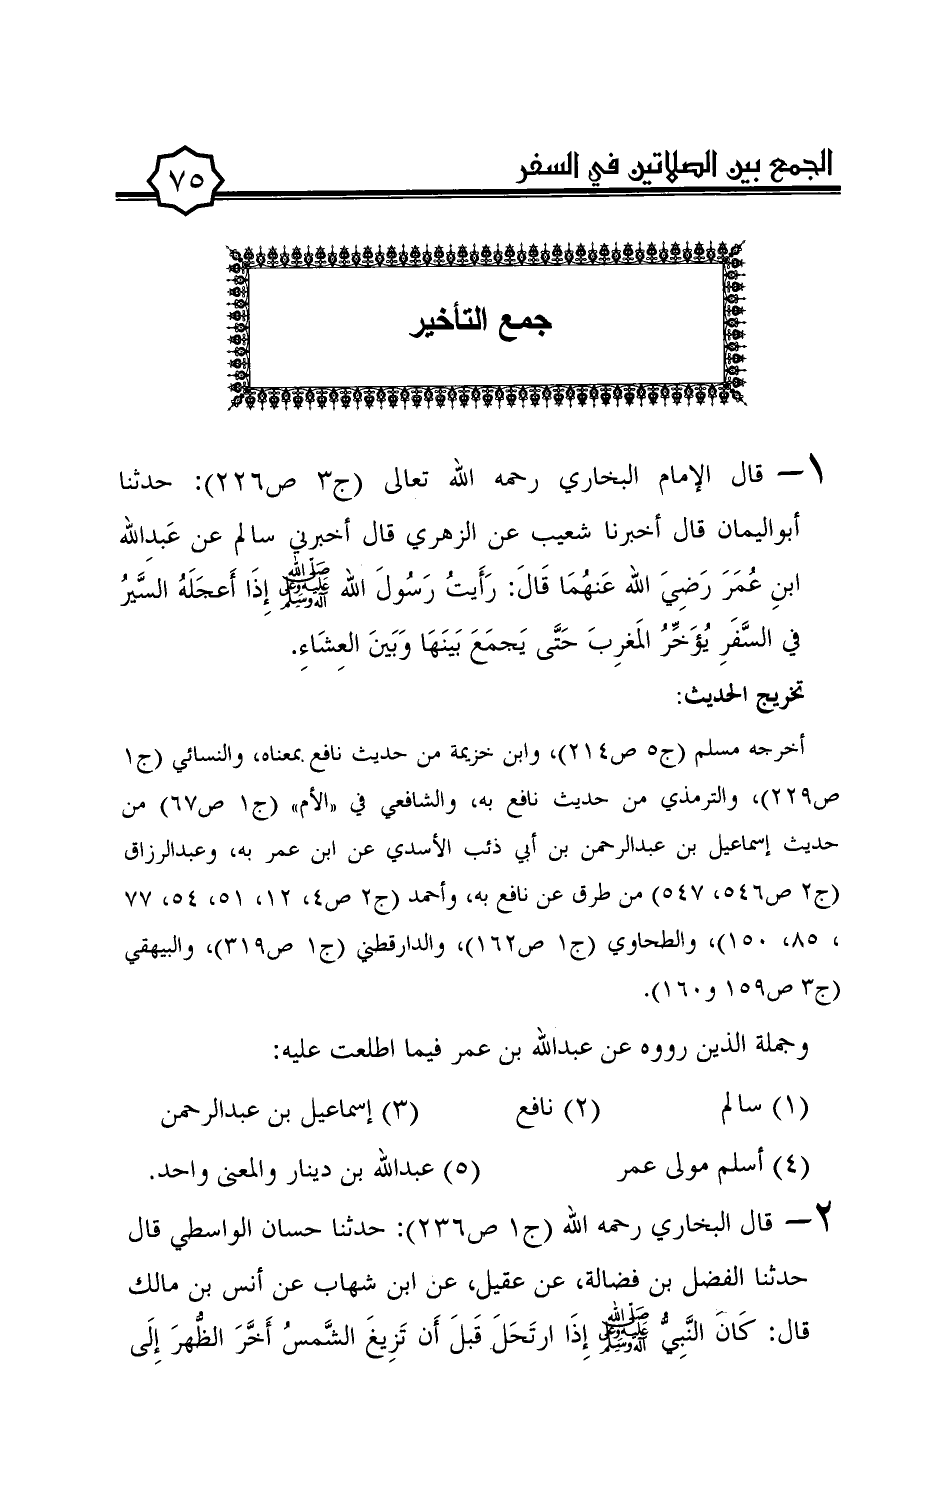 الجمع بين الصلاتين في السفر
٧٥
جمع التأخير
١– قال الإمام البخاري رحمه الله تعالى (ج٣ ص٢٢٦): حدثنا
أبواليمان قال أخبرنا شعيب عن الزهري قال أخبرني سالم عن عَبدِالله
ابنِ عُمَرَ رَضِيَ الله عَنهُمَا قَالَ: رَأَيتُ رَسُولَ الله ﷺ إِذَا أَعجَلَهُ السَّيرُ
في السَّفَرِ يُؤَخِّرُ المَغرِبَ حَتَّى يَجمَعَ بَينَهَا وَبَينَ العِشَاءِ.
تخريج الحديث:
أخرجه مسلم (ج٥ ص٢١٤)، وابن خزيمة من حديث نافع بمعناه، والنسائي (ج١
ص٢٢٩)، والترمذي من حديث نافع به، والشافعي في «الأم» (ج١ ص٦٧) من
حديث إسماعيل بن عبدالرحمن بن أبي ذئب الأسدي عن ابن عمر به، وعبدالرزاق
(ج٢ ص٥٤٦، ٥٤٧) من طرق عن نافع به، وأحمد (ج٢ ص٤، ١٢، ٥١، ٥٤، ٧٧
، ٨٥، ١٥٠)، والطحاوي (ج١ ص١٦٢)، والدارقطني (ج١ ص٣١٩)، والبيهقي
(ج٣ ص١٥٩ و١٦٠).
وجملة الذين رووه عن عبدالله بن عمر فيما اطلعت عليه:
(١) سالم (٢) نافع (٣) إسماعيل بن عبدالرحمن
(٤) أسلم مولى عمر (٥) عبدالله بن دينار والمعنى واحد.
٢– قال البخاري رحمه الله (ج١ ص٢٣٦): حدثنا حسان الواسطي قال
حدثنا الفضل بن فضالة، عن عقيل، عن ابن شهاب عن أنس بن مالك
قال: كَانَ النَّبِيُّ ﷺ إِذَا ارتَحَلَ قَبلَ أَن تَزِيغَ الشَّمسُ أَخَّرَ الظُّهرَ إِلَى